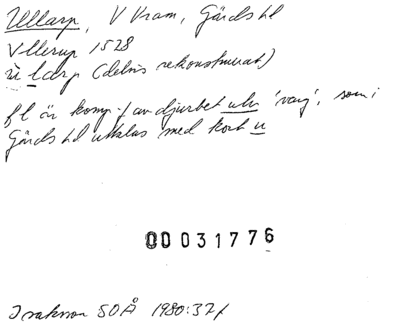 Ullarp, V Vram, Gärds hd
Vllerup 1528
ùlarp (delvis rekonstruerat)
fl är komp. f av djurbet ulv 'varg', som i
Gärds hd uttalas med kort u
00031776
Isaksson SOÅ 1980:32f